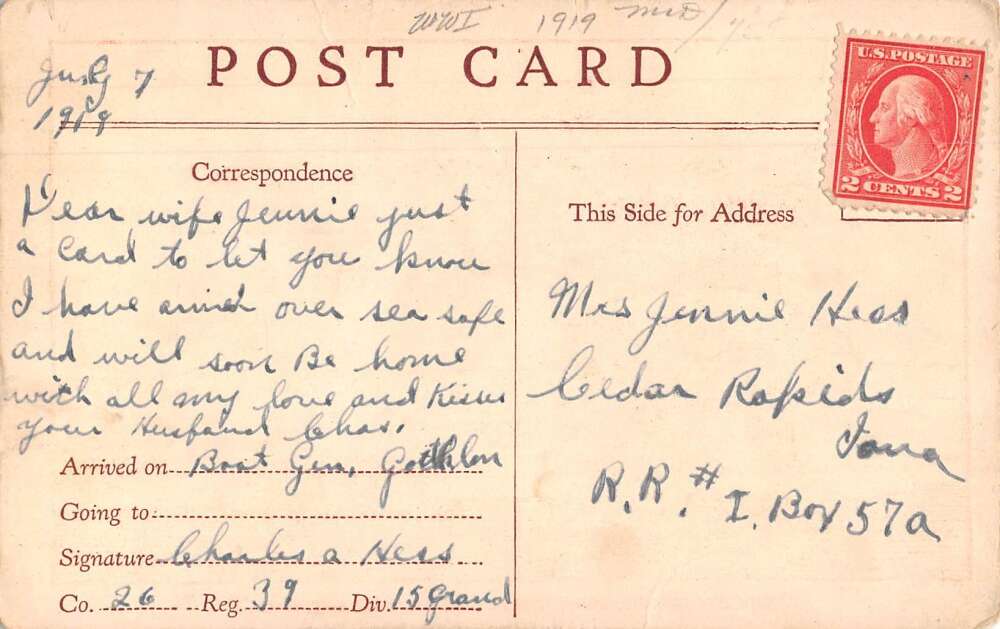 WWI 1919
POST CARD
U.S. POSTAGE
2 CENTS 2
July 7
1919
Correspondence
Dear wife Jennie just
a Card to let you know
I have arrived over sea safe
and will soon Be home
with all my love and Kisses
your Husband Chas.
Arrived on Boat Gen,
Going to
Signature Charles a Hess
Co. 26 Reg. 39 Div. 15 Grand
This Side for Address
Mrs Jennie Hess
Cedar Rapids
Iowa
R.R. # I. Box 57a